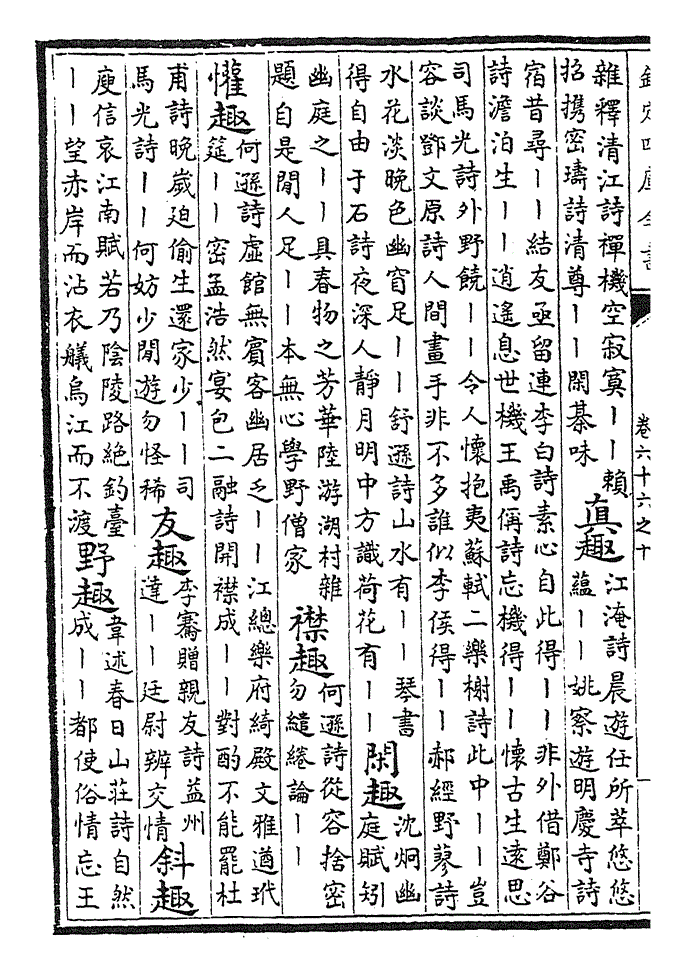 欽定四庫全書
卷六十六之十
雜釋清江詩禪機空寂寞丨丨賴
招攜密璹詩清尊丨丨閑棊味
真趣
江淹詩晨遊任所萃悠悠
蘊丨丨姚察遊明慶寺詩
宿昔尋丨丨結友亟留連李白詩素心自此得丨丨非外借鄭谷
詩澹泊生丨丨逍遙息世機王禹偁詩忘機得丨丨懷古生遠思
司馬光詩外野饒丨丨令人懷抱夷蘇軾二樂榭詩此中丨丨豈
容談鄧文原詩人間畫手非不多誰似李侯得丨丨郝經野蓼詩
水花淡晚色幽窅足丨丨舒遜詩山水有丨丨琴書
得自由于石詩夜深人靜月明中方識荷花有丨丨
閑趣
沈炯幽
庭賦矧
幽庭之丨丨具春物之芳華陸游湖村雜
題自是閒人足丨丨本無心學野僧家
襟趣
何遜詩從容捨密
勿繾綣論丨丨
懽趣
何遜詩虛館無賓客幽居乏丨丨江總樂府綺殿文雅遒玳
筵丨丨密孟浩然宴包二融詩開襟成丨丨對酌不能罷杜
甫詩晚歲迫偷生還家少丨丨司
馬光詩丨丨何妨少閒遊勿怪稀
友趣
李騫贈親友詩益州
達丨丨廷尉辨交情
斜趣
庾信哀江南賦若乃陰陵路絕釣臺
丨丨望赤岸而沾衣艤烏江而不渡
野趣
韋述春日山莊詩自然
成丨丨都使俗情忘王